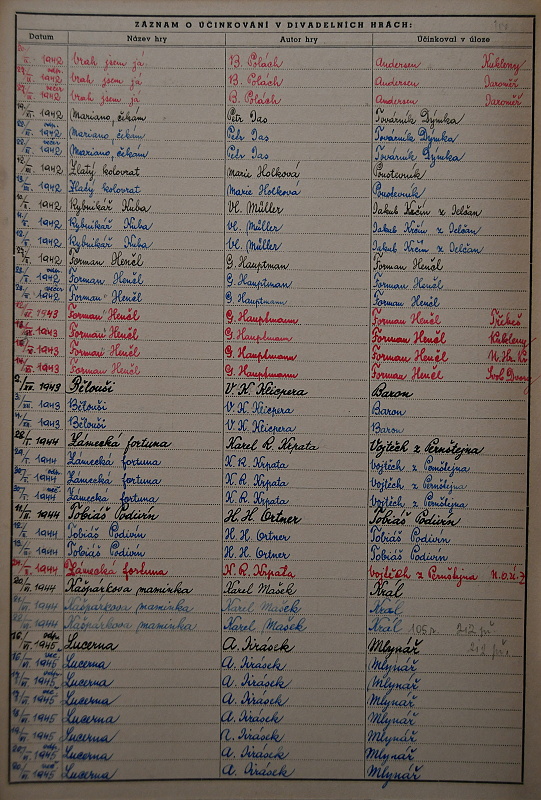 ZÁZNAM O ÚČINKOVÁNÍ V DIVADELNÍCH HRÁCH:
Datum Název hry Autor hry Účinkoval v úloze
1942 Vrah jsem já B. Polách Andersen Kukleny
1942 Vrah jsem já B. Polách Andersen Jaroměř
1942 Vrah jsem já B. Polách Andersen Jaroměř
1942 Mariano, čekám Petr Jas Továrník Dýmka
1942 Mariano, čekám Petr Jas Továrník Dýmka
1942 Mariano, čekám Petr Jas Továrník Dýmka
1942 Zlatý kolovrat Marie Holková Poustevník
1942 Zlatý kolovrat Marie Holková Poustevník
1942 Rybnikář Kuba Vl. Müller Jakub Krčín z Jelčan
1942 Rybnikář Kuba Vl. Müller Jakub Krčín z Jelčan
1942 Rybnikář Kuba Vl. Müller Jakub Krčín z Jelčan
1942 Forman Henčl G. Hauptman Forman Henčl
1942 Forman Henčl G. Hauptman Forman Henčl
1942 Forman Henčl G. Hauptmann Forman Henčl
1943 Forman Henčl G. Hauptmann Forman Henčl
1943 Forman Henčl G. Hauptmann Forman Henčl Kukleny
1943 Forman Henčl G. Hauptmann Forman Henčl
1943 Forman Henčl G. Hauptmann Forman Henčl
1943 Bělouši V. K. Klicpera Baron
1943 Bělouši V. K. Klicpera Baron
1943 Bělouši V. K. Klicpera Baron
1944 Zámecká fortuna Karel R. Krpata Vojtěch z Pernštejna
1944 Zámecká fortuna K. R. Krpata Vojtěch z Pernštejna
1944 Zámecká fortuna K. R. Krpata Vojtěch z Pernštejna
1944 Zámecká fortuna K. R. Krpata Vojtěch z Pernštejna
1944 Tobiáš Podivín H. H. Ortner Tobiáš Podivín
1944 Tobiáš Podivín H. H. Ortner Tobiáš Podivín
1944 Tobiáš Podivín H. H. Ortner Tobiáš Podivín
1944 Zámecká fortuna K. R. Krpata Vojtěch z Pernštejna
1944 Kašpárkova maminka Karel Mašek Král
1944 Kašpárkova maminka Karel Mašek Král
1944 Kašpárkova maminka Karel Mašek Král
1945 Lucerna A. Jirásek Mlynář
1945 Lucerna A. Jirásek Mlynář
1945 Lucerna A. Jirásek Mlynář
1945 Lucerna A. Jirásek Mlynář
1945 Lucerna A. Jirásek Mlynář
1945 Lucerna A. Jirásek Mlynář
1945 Lucerna A. Jirásek Mlynář
1945 Lucerna A. Jirásek Mlynář